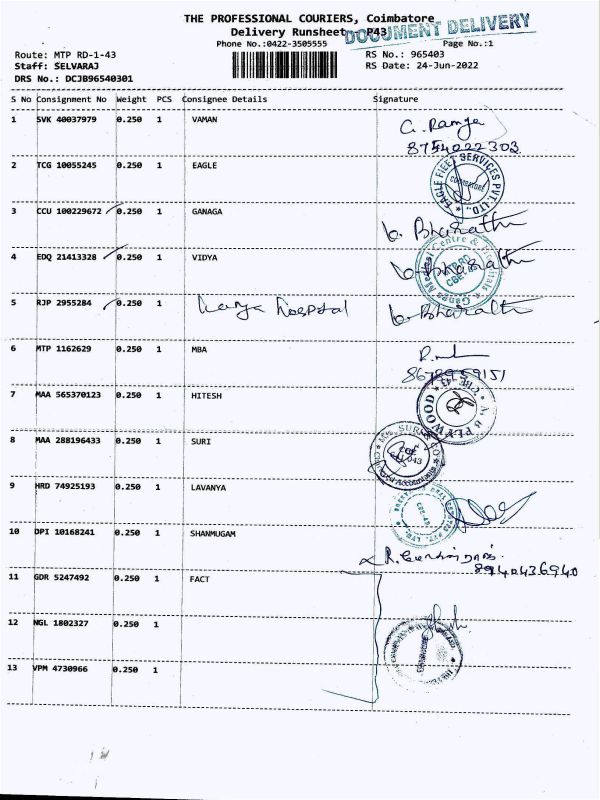 THE PROFESSIONAL COURIERS, Coimbatore
Delivery Runsheet - P43
DOCUMENT DELIVERY
Phone No.:0422-3505555
Page No.:1
Route: MTP RD-1-43
RS No.: 965403
Staff: SELVARAJ
RS Date: 24-Jun-2022
DRS No.: DCJB96540301
S No Consignment No Weight PCS Consignee Details Signature
1 SVK 40037979 0.250 1 VAMAN G. Ramya
8754022303
2 TCG 10055245 0.250 1 EAGLE EAGLE FLEET SERVICES PVT. LTD., COIMBATORE
3 CCU 100229672 0.250 1 GANAGA b. Bharathi
4 EDQ 21413328 0.250 1 VIDYA b. Bharathi
5 RJP 2955284 0.250 1 hospital b. Bharathi
6 MTP 1162629 0.250 1 MBA
8678959151
7 MAA 565370123 0.250 1 HITESH A.B PLYWOOD
8 MAA 288196433 0.250 1 SURI
9 HRD 74925193 0.250 1 LAVANYA
10 DPI 10168241 0.250 1 SHANMUGAM
8940436940
11 GDR 5247492 0.250 1 FACT
12 NGL 1802327 0.250 1
13 VPM 4730966 0.250 1